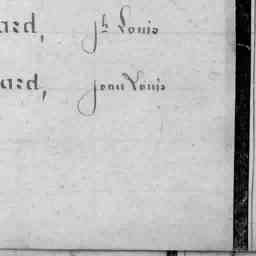 ard, jh Louis
ard, jean Louis